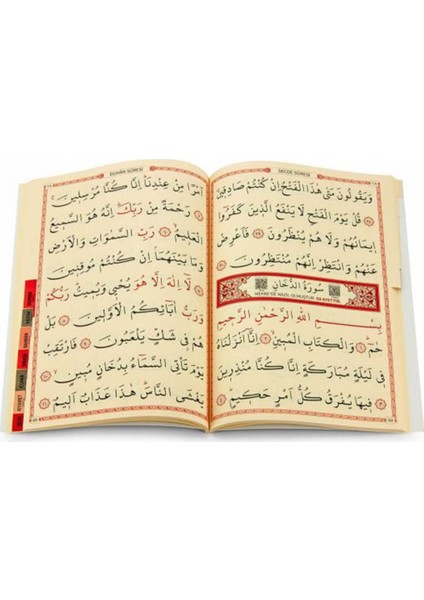 SECDE SÛRESİ
وَيَقُولُونَ مَتٰى هٰذَا الْفَتْحُ اِنْ كُنْتُمْ صَادِقٖينَ
قُلْ يَوْمَ الْفَتْحِ لَا يَنْفَعُ الَّذٖينَ كَفَرُٓوا
اٖيمَانُهُمْ وَلَا هُمْ يُنْظَرُونَ فَاَعْرِضْ
عَنْهُمْ وَانْتَظِرْ اِنَّهُمْ مُنْتَظِرُونَ
سُورَةُ الدُّخَانِ
MEKKE'DE NAZİL OLMUŞTUR. 59 AYETTİR.
بِسْمِ اللّٰهِ الرَّحْمٰنِ الرَّحٖيمِ
حٰمٓ وَالْكِتَابِ الْمُبٖينِ اِنَّٓا اَنْزَلْنَاهُ
فٖي لَيْلَةٍ مُبَارَكَةٍ اِنَّا كُنَّا مُنْذِرٖينَ
فٖيهَا يُفْرَقُ كُلُّ اَمْرٍ حَكٖيمٍ
DUHÂN SÛRESİ
اَمْرًا مِنْ عِنْدِنَا اِنَّا كُنَّا مُرْسِلٖينَ
رَحْمَةً مِنْ رَبِّكَ اِنَّهُ هُوَ السَّمٖيعُ
الْعَلٖيمُ رَبِّ السَّمٰوَاتِ وَالْاَرْضِ
وَمَا بَيْنَهُمَا اِنْ كُنْتُمْ مُوقِنٖينَ
لَٓا اِلٰهَ اِلَّا هُوَ يُحْيٖي وَيُمٖيتُ رَبُّكُمْ
وَرَبُّ اٰبَٓائِكُمُ الْاَوَّلٖينَ بَلْ
هُمْ فٖي شَكٍّ يَلْعَبُونَ فَارْتَقِبْ
يَوْمَ تَأْتِي السَّمَٓاءُ بِدُخَانٍ مُبٖينٍ
يَغْشَى النَّاسَ هٰذَا عَذَابٌ اَلٖيمٌ